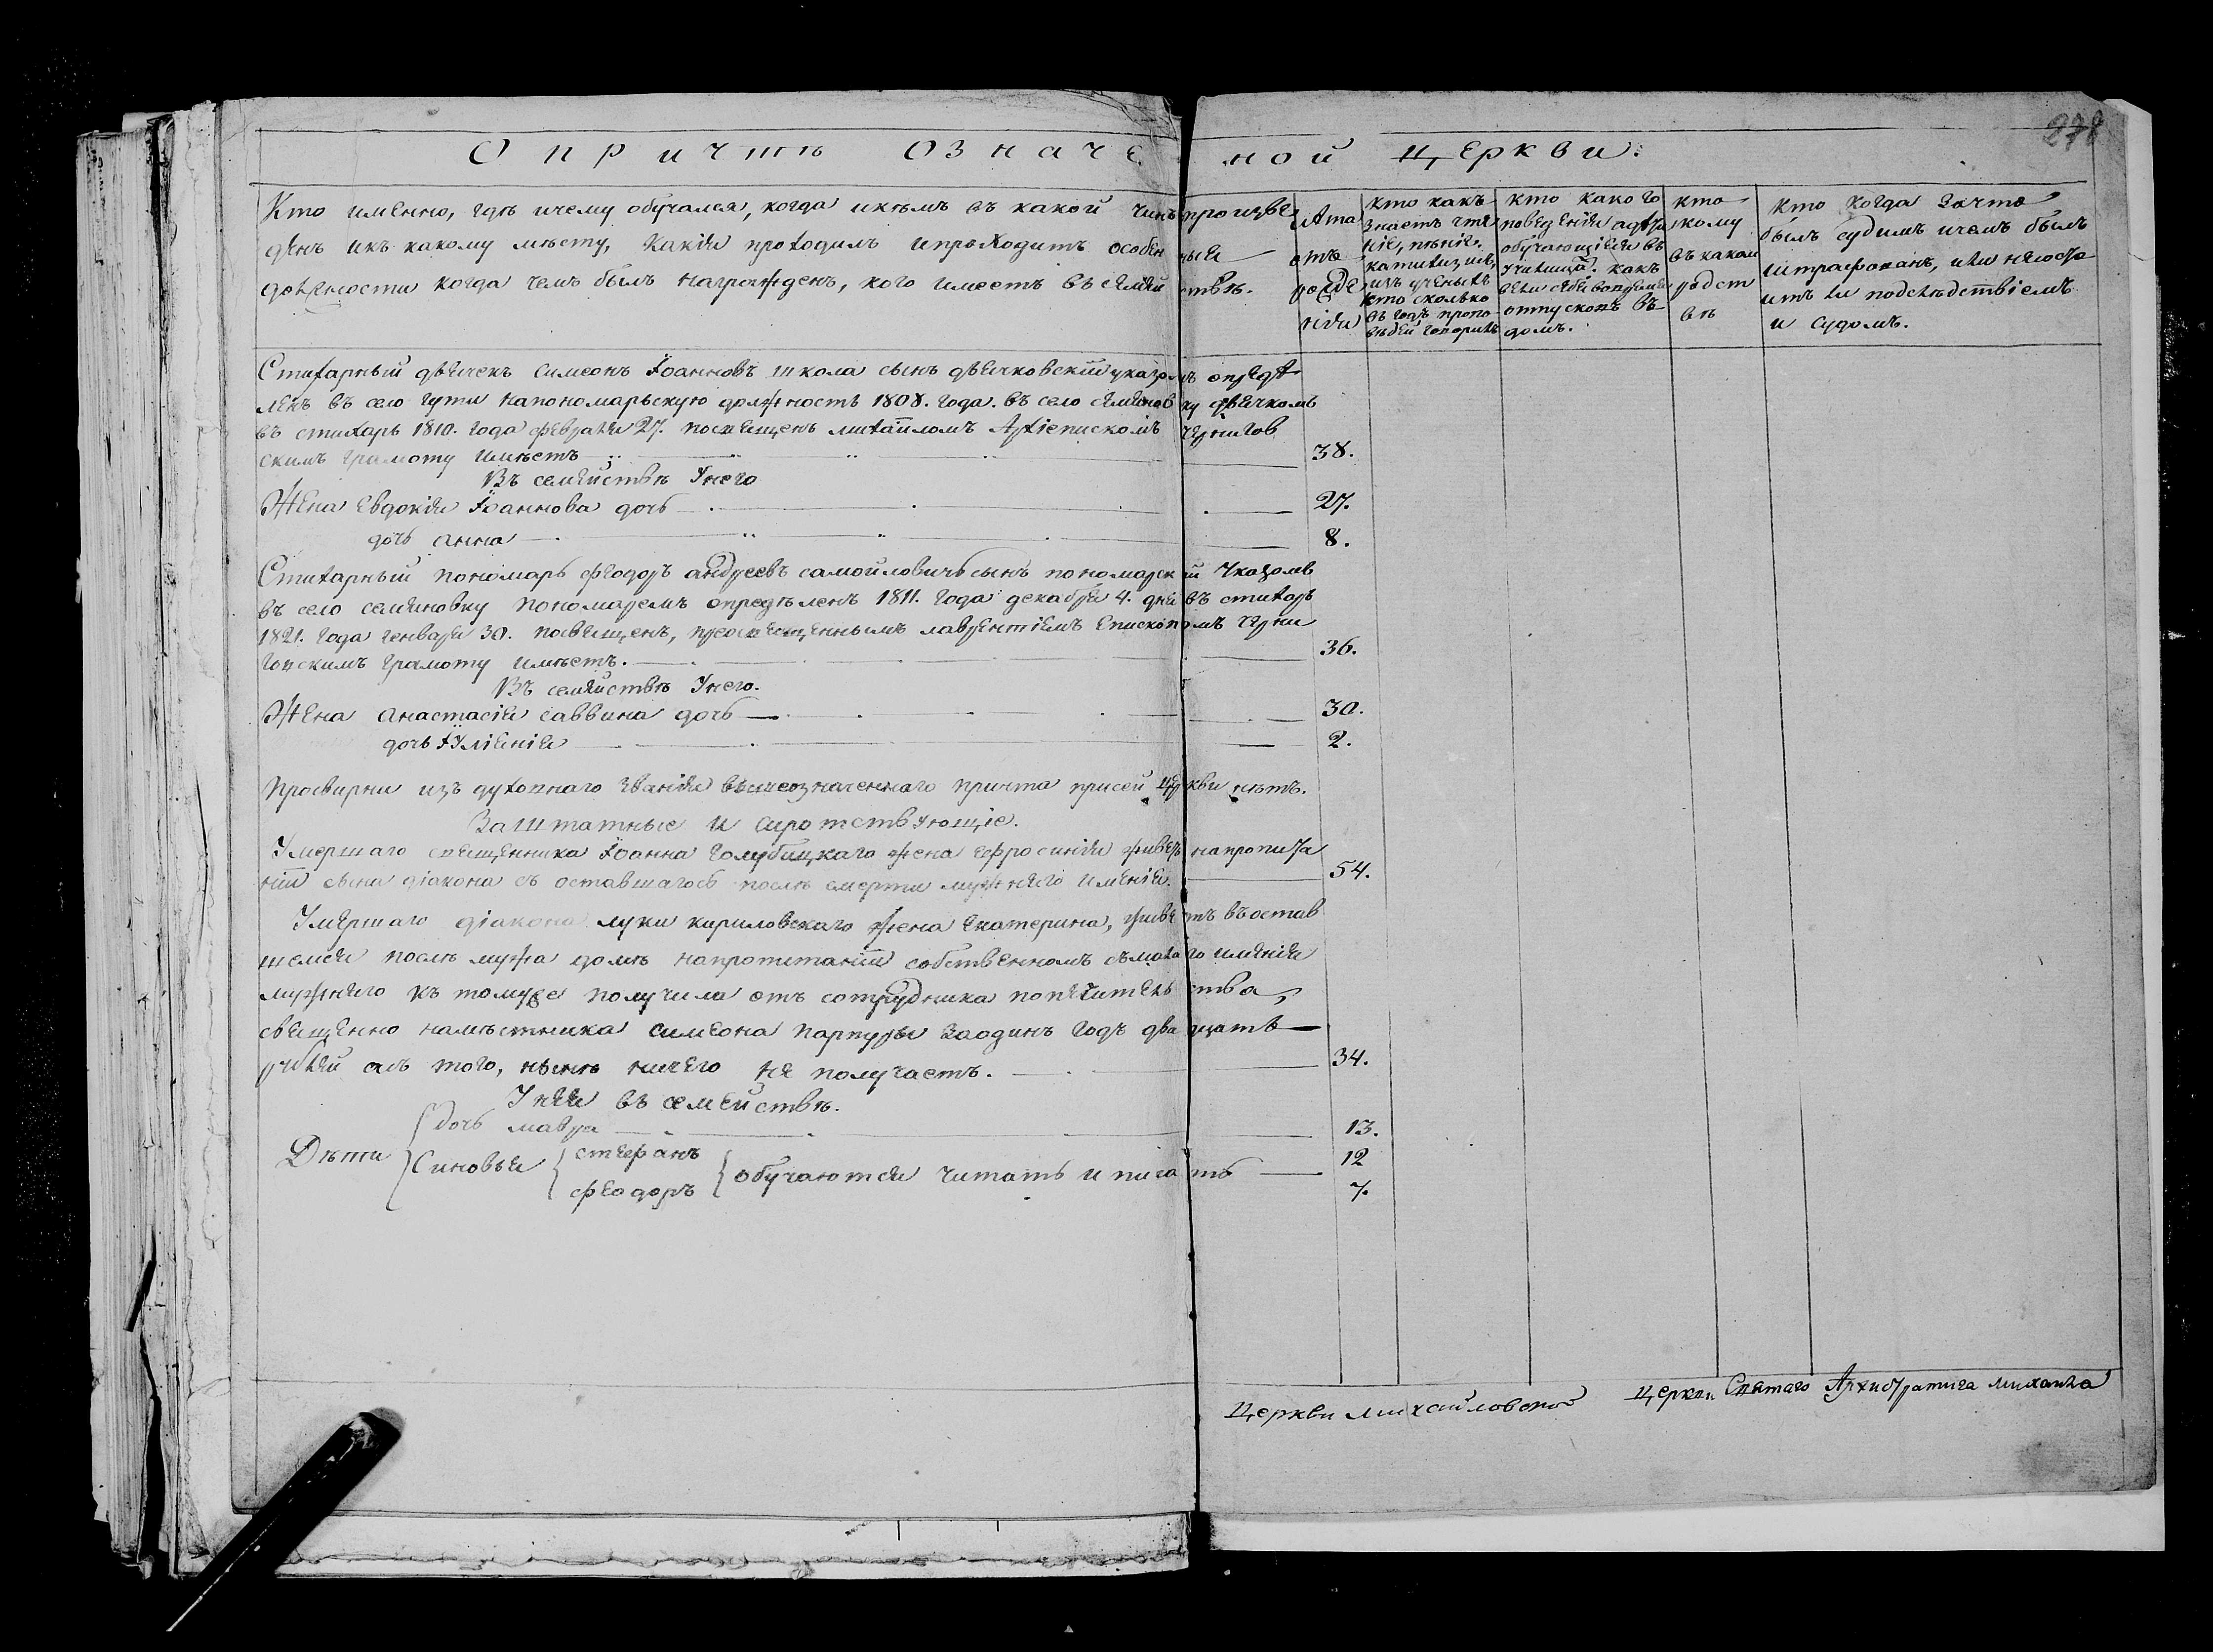 278
О причтѣ означе ной церкви:
Кто именно, гдѣ ичему обучался, когда икѣмъ въ какой чинъ произве
денъ икъ какому мѣсту, какія проходилъ ипроходитъ особен ныя
должности когда чемъ былъ награжденъ, кого имеетъ въ семей ствѣ.
Лета отъ рожде нія
Кто какъ знаетъ чте ніе, пѣніе, катихизисъ, изъ ученыхъ кто сколько въ годъ пропо вѣдей говоритъ
Кто какого поведенія адѣти обучающіеся въ училища. какъ вели себя вовремя отпусковъ въ домъ.
Кто кому въ какомъ родст вѣ
Кто когда зачто былъ судимъ ичемъ былъ штрафованъ, или несосто итъ ли подслѣдствіемъ и судомъ.
Стихарный дьячекъ Симеонъ Іоанновъ Школа сынъ дьячковскій указомъ опредѣ
ленъ въ село Гути напономарьскую должность 1808. года. въ село Семянов ку дьячкомъ
въ стихарь 1810. года февраля 27. посвященъ михаиломъ Архіепископомъ Чернигов
скимъ грамоту имѣетъ 38.
Въ семействѣ Унего
Жена Евдокія Іоаннова дочь 27.
дочь Анна 8.
Стихарный пономарь Феодоръ Андреевъ Самойловичь сынъ пономарск ій Указомъ
въ село Семяновку пономаремъ опредѣленъ 1811. года декабря 4. дня въ стихарь
1821. года генваря 30. посвященъ, преосвященнымъ лаврентіемъ Епископомъ Черни
говскимъ грамоту имѣетъ. 36.
Въ семействѣ Унего.
Жена Анастасія Саввина дочь 30.
дочь Іуліянія 2.
Просвирни изъ духовнаго званія вышеозначеннаго причта присей Церкви нѣтъ.
Заштатные и сиротствующіе.
Умершаго священника Іоанна Голубицкаго жена Ефросинія живетъ напропита
ніи сына діакона съ оставшагось послѣ смерти мужняго именія. 54.
Умершаго діакона луки кириловскаго жена Екатерина, живетъ въостав
шемся послѣ мужа домѣ напропитаніи собственномъ съмалаго именія
мужняго къ томуже получила отъ сотрудника попечительства,
священно намѣстника Симеона Парпуры заодинъ годъ двацать
рублей асъ того, нынѣ ничего не получаетъ. 34.
У нея въ семействѣ.
Дѣти
дочь мавра 13.
Синовья
стефанъ 12
феодоръ 7.
обучаются читать и писать
Церкви михайловской
церкви Святаго Архистратига михаила